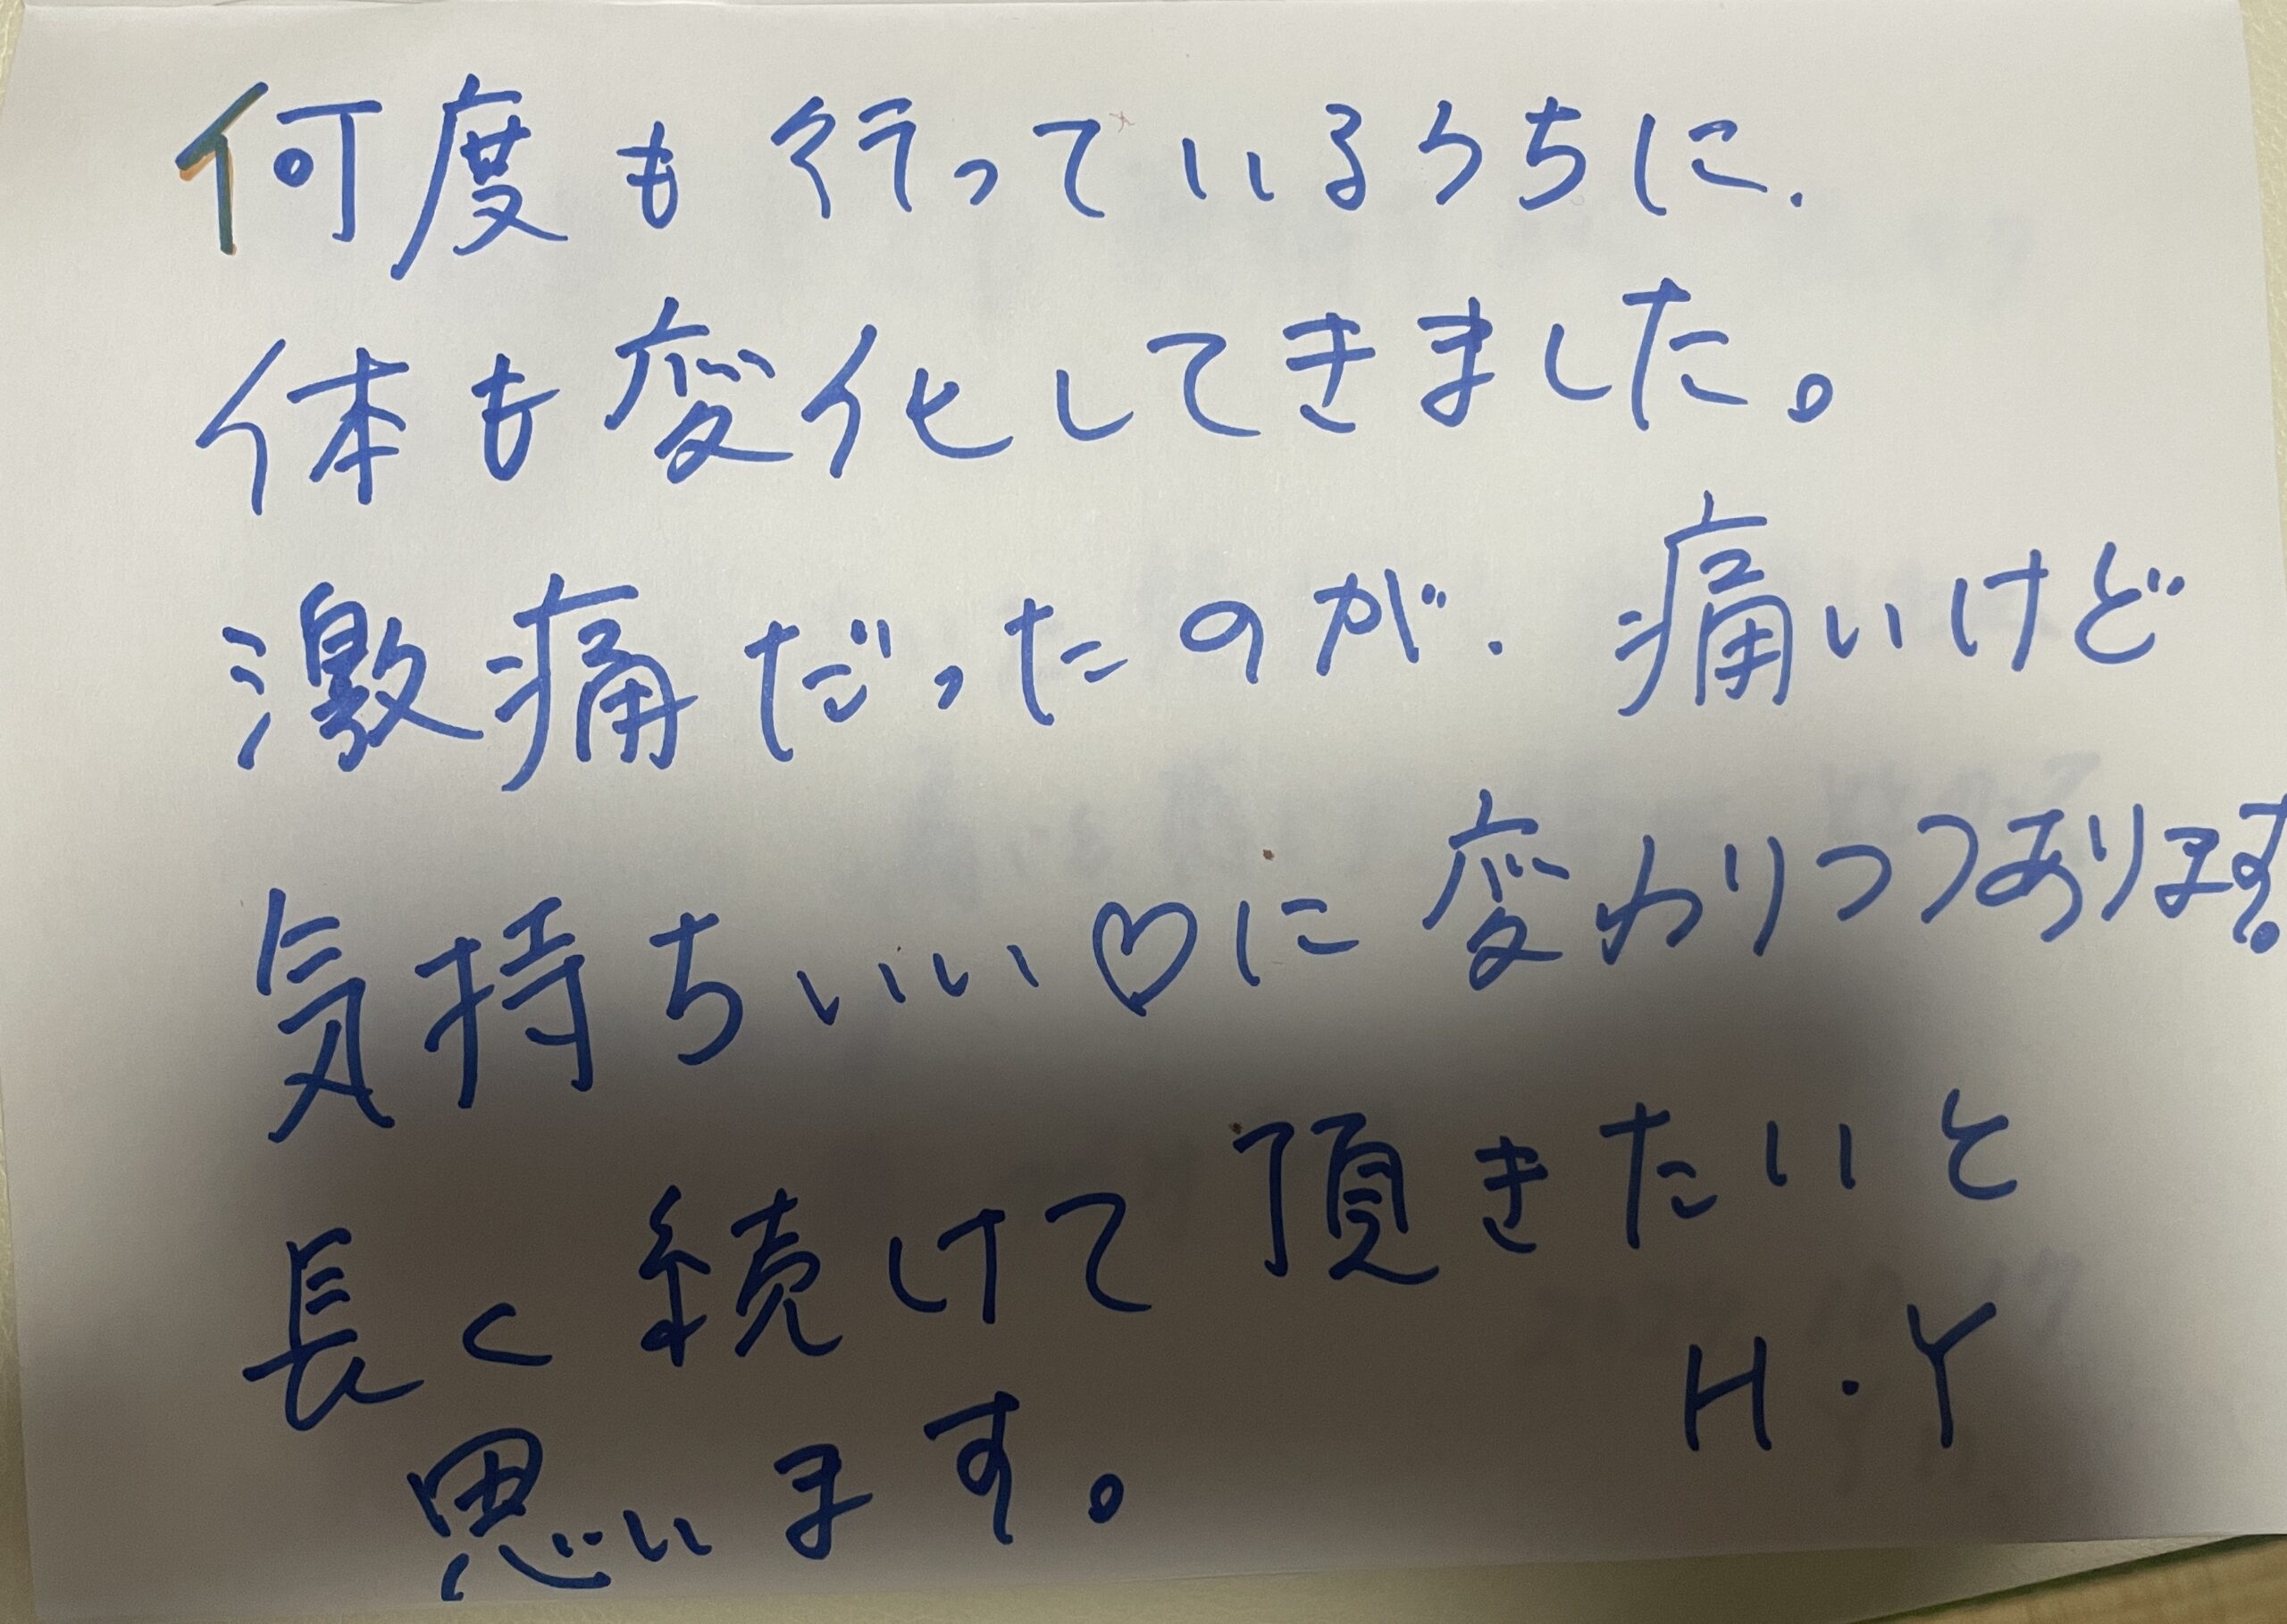 何度も行っているうちに、
体も変化してきました。
激痛だったのが、痛いけど
気持ちいい♡に変わりつつあります。
長く続けて頂きたいと
思います。
H・Y